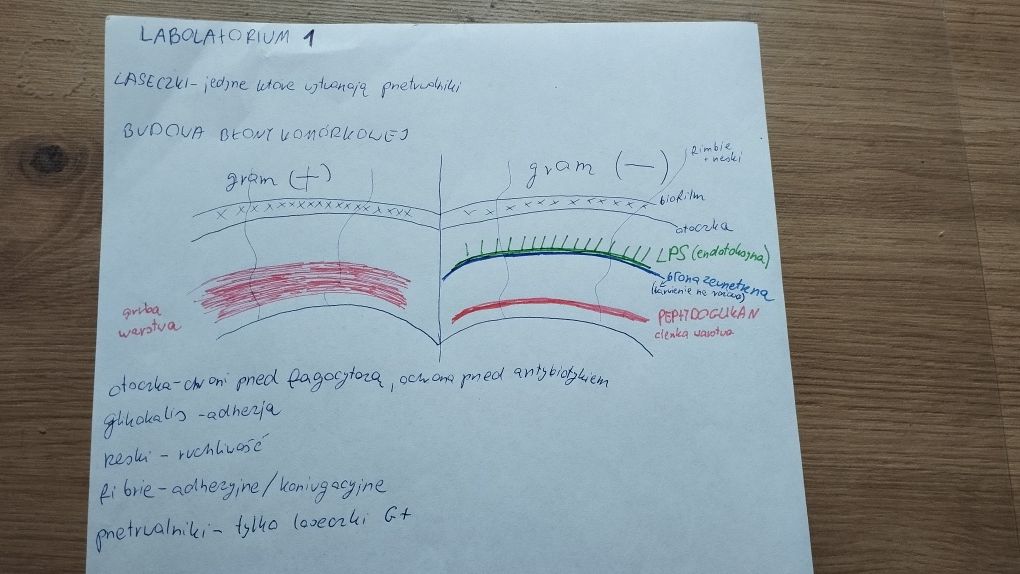 LABOLATORIUM 1
LASECZKI - jedyne które wytwarzają przetrwalniki
BUDOWA BŁONY KOMÓRKOWEJ
gram (+)
gram (-)
fimbie
+ rzęski
biofilm
otoczka
LPS (endotoksyna)
błona zewnętrzna
(barwienie na różowo)
gruba
warstwa
PEPTYDOGLIKAN
cienka warstwa
otoczka - chroni przed fagocytozą, ochrona przed antybiotykiem
glikokaliks - adhezja
rzęski - ruchliwość
fibrie - adhezyjne/koniugacyjne
przetrwalniki - tylko laseczki G+